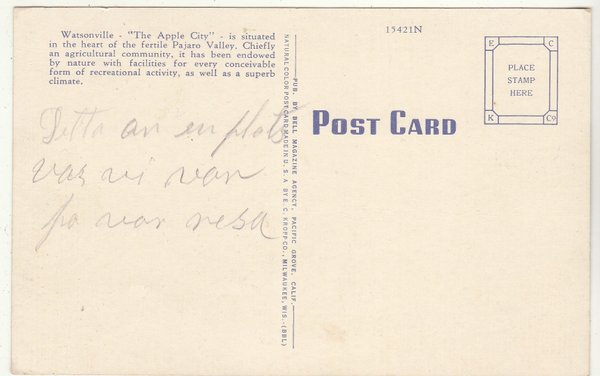 Watsonville - "The Apple City" - is situated
in the heart of the fertile Pajaro Valley. Chiefly
an agricultural community, it has been endowed
by nature with facilities for every conceivable
form of recreational activity, as well as a superb
climate.
Detta är en plats
var vi var
på vår resa
PUB. BY BELL MAGAZINE AGENCY, PACIFIC GROVE, CALIF.
NATURAL COLOR POST CARD MADE IN U. S. A. BY E. C. KROPP CO., MILWAUKEE, WIS.-(BBL)
15421N
POST CARD
E C
PLACE
STAMP
HERE
K Co